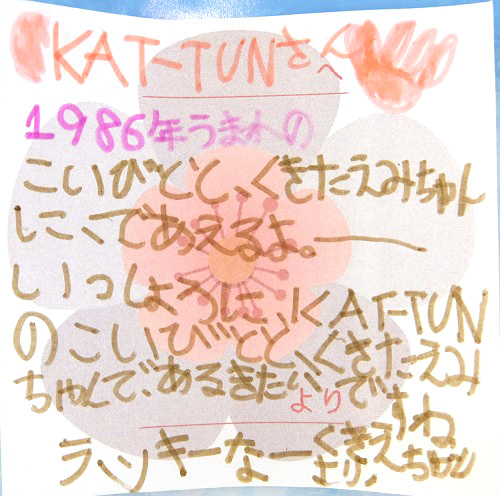 KAT-TUNさんへ
1986年うまれの
こいびとと、くきたえみちゃん
しここであえるよ。ー
いっしょろに、KAT-TUN
のこいびとと、くきたえみ
ちゃんで、あるきたいですね
より
ラッキーなーくきえちゃん
より.